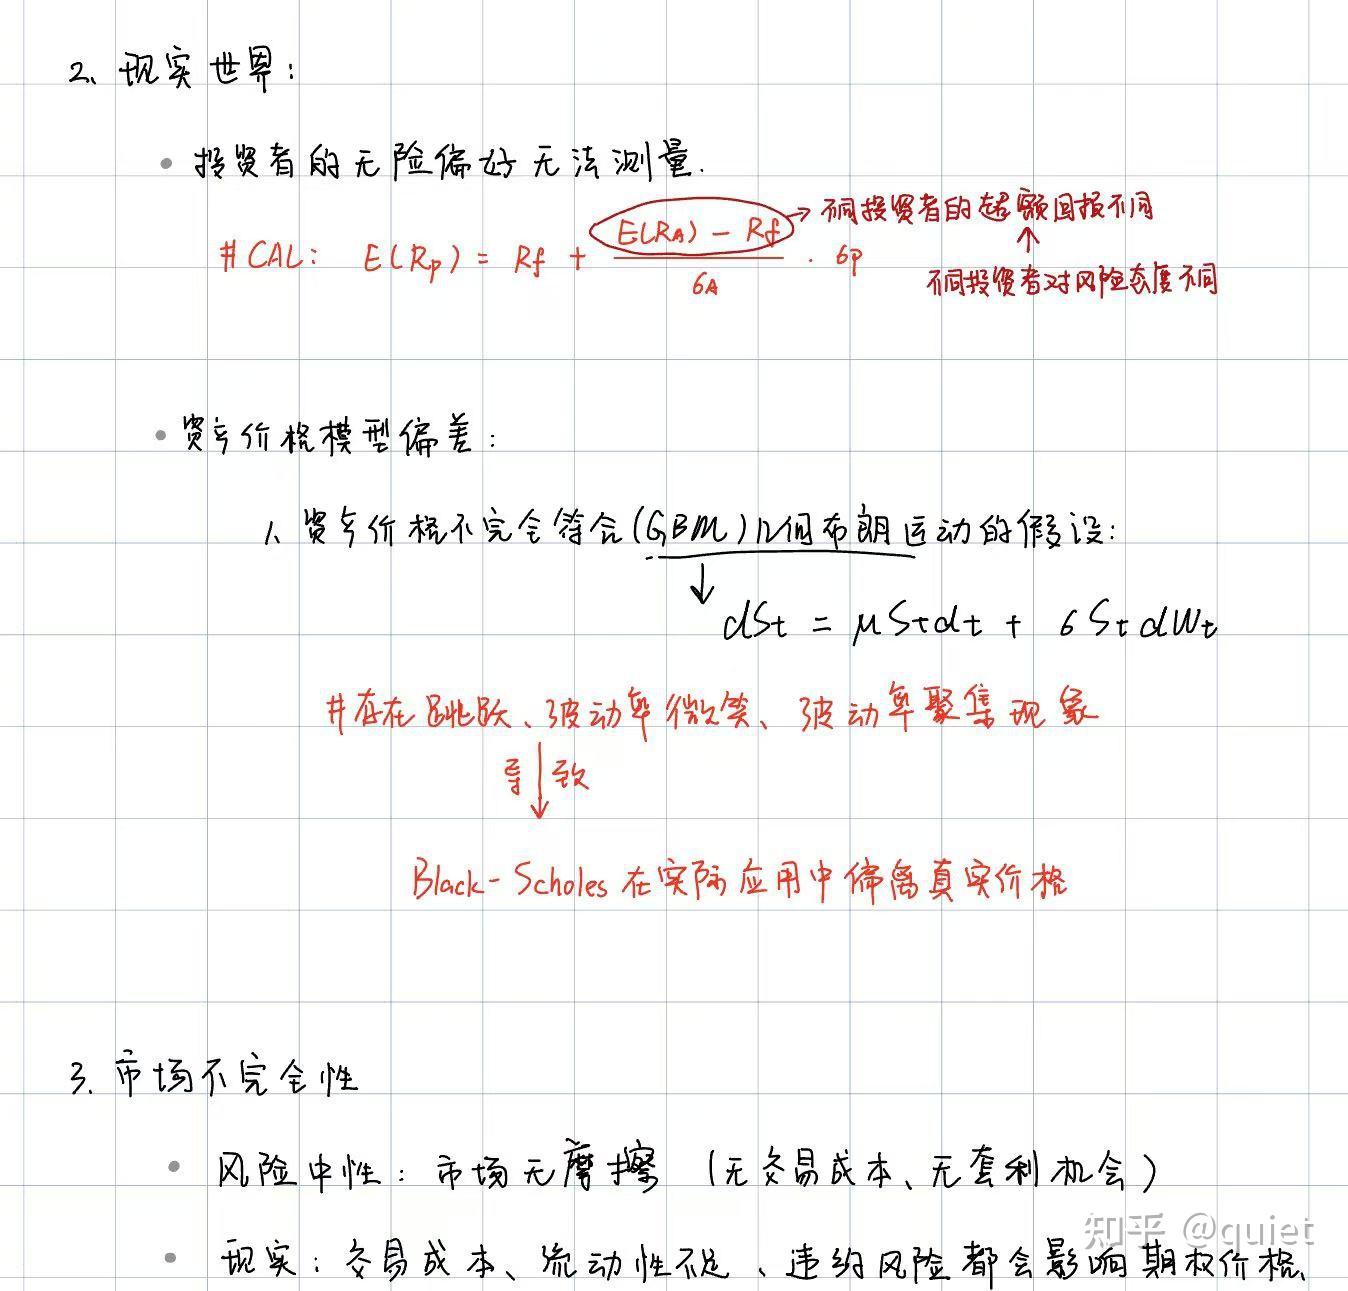 2、现实世界：
• 投资者的无险偏好无法测量.
#CAL： E(Rp) = Rf + (E(RA) - Rf)/6A · 6p → 不同投资者的超额回报不同
↑
不同投资者对风险态度不同
• 资产价格模型偏差：
1、资产价格不完全符合(GBM)几何布朗运动的假设：
↓
dSt = μStdt + 6StdWt
#存在跳跃、波动率微笑、波动率聚集现象
导↓致
Black-Scholes在实际应用中偏离真实价格
3、市场不完全性
• 风险中性：市场无摩擦（无交易成本、无套利机会）
• 现实：交易成本、流动性不足、违约风险都会影响期权价格、
知乎 @quiet